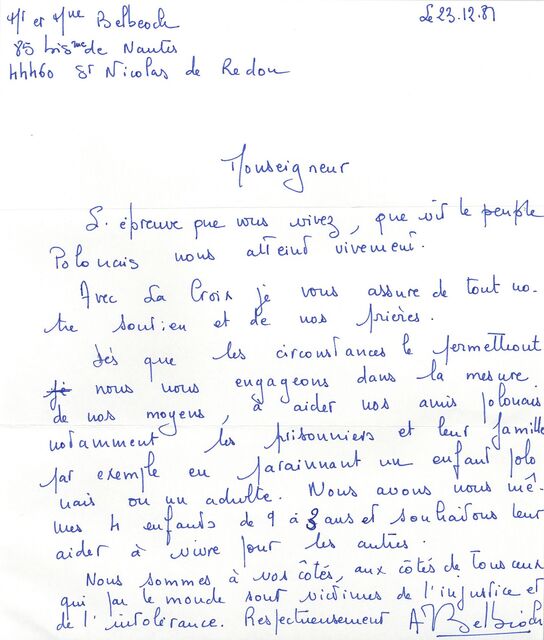 Mr et Mme Belbeoch
85 bis rte de Nantes
44460 St Nicolas de Redon
Le 23.12.81
Monseigneur
L'épreuve que vous vivez, que vit le peuple
Polonais nous atteint vivement.
Avec La Croix je vous assure de tout no-
tre soutien et de nos prières.
Dés que les circonstances le permettront
je nous nous engageons dans la mesure
de nos moyens, à aider nos amis polonais
notamment les prisonniers et leur famille
par exemple en parainnant un enfant polo
nais ou un adulte. Nous avons nous mê-
mes 4 enfants de 9 à 3 ans et souhaitons leur
aider à vivre pour les autres.
Nous sommes à vos côtés, aux côtés de tous ceux
qui par le monde sont victimes de l'injustice et
de l'intolérance. Respectueusement A Belbeoch